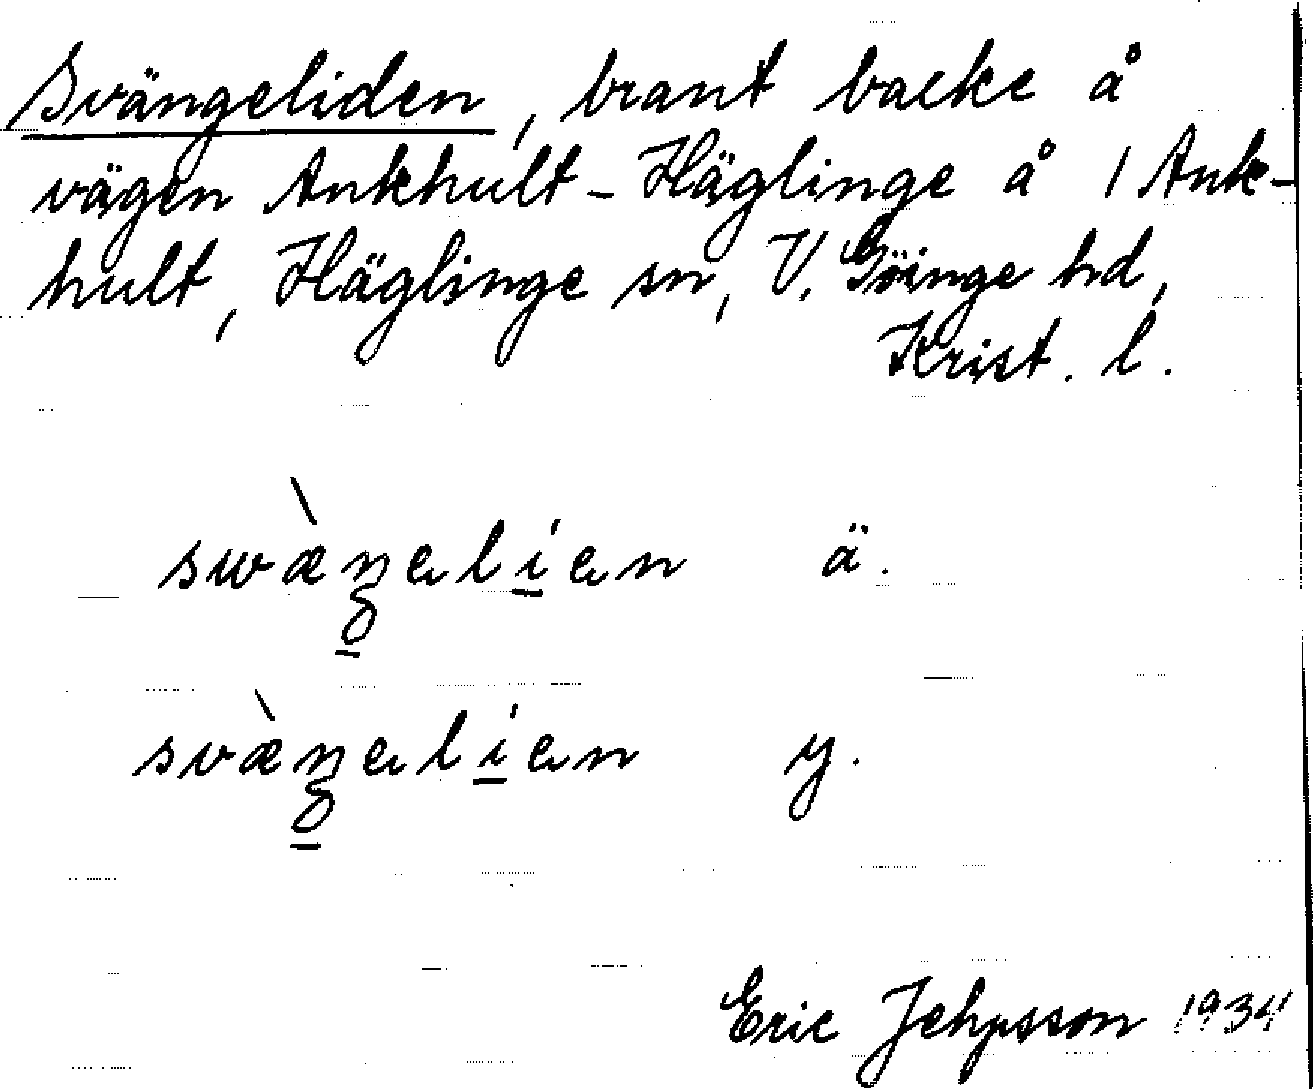 Svängeliden, brant backe å
vägen Ankhult - Häglinge å 1 Ank-
hult, Häglinge sn, V. Göinge hd,
Krist. l.
swæ̀ŋelien ä.
svæ̀ŋelien y.
Eric Jehpsson 1934